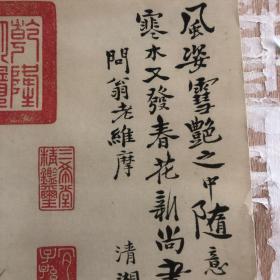 風姿雪艷之中随意
寒木又發春花新尚書
問翁老維摩
清湘
乾隆
三希堂
精鑑璽
宜
子孫